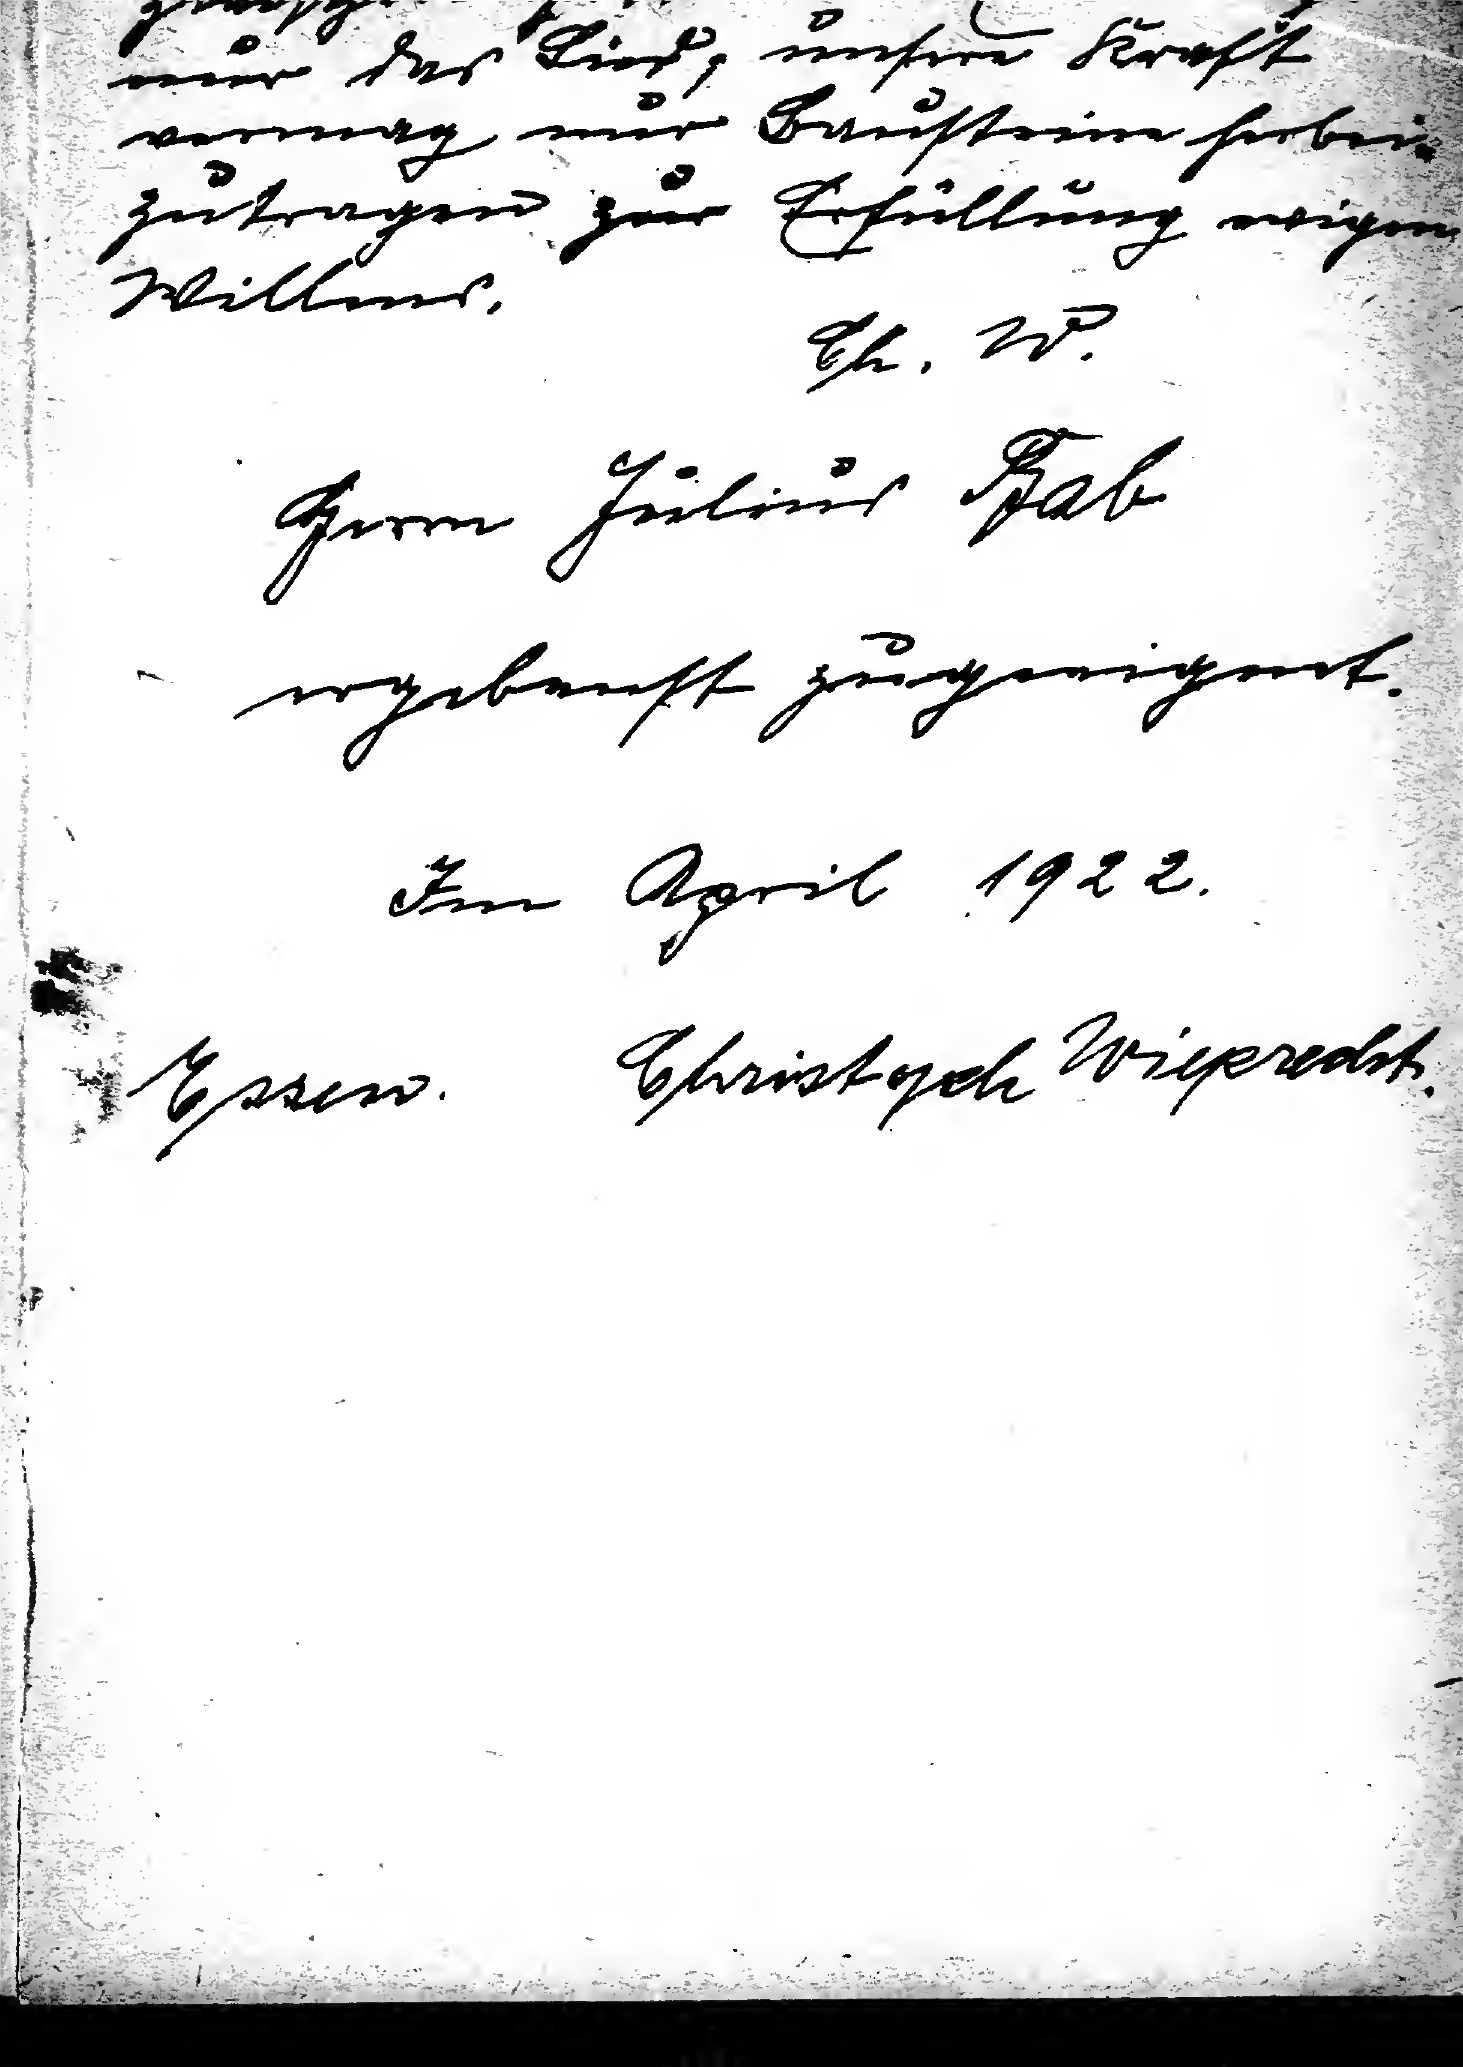 nur das Lied, unsere Kraft
vermag nur Bausteine herbei-
zutragen zur Erfüllung ewigen
Willens.
Ch. W.
Herrn Julius Bab
ergebenst zugeeignet.
Im April 1922.
Essen. Christoph Wieprecht.